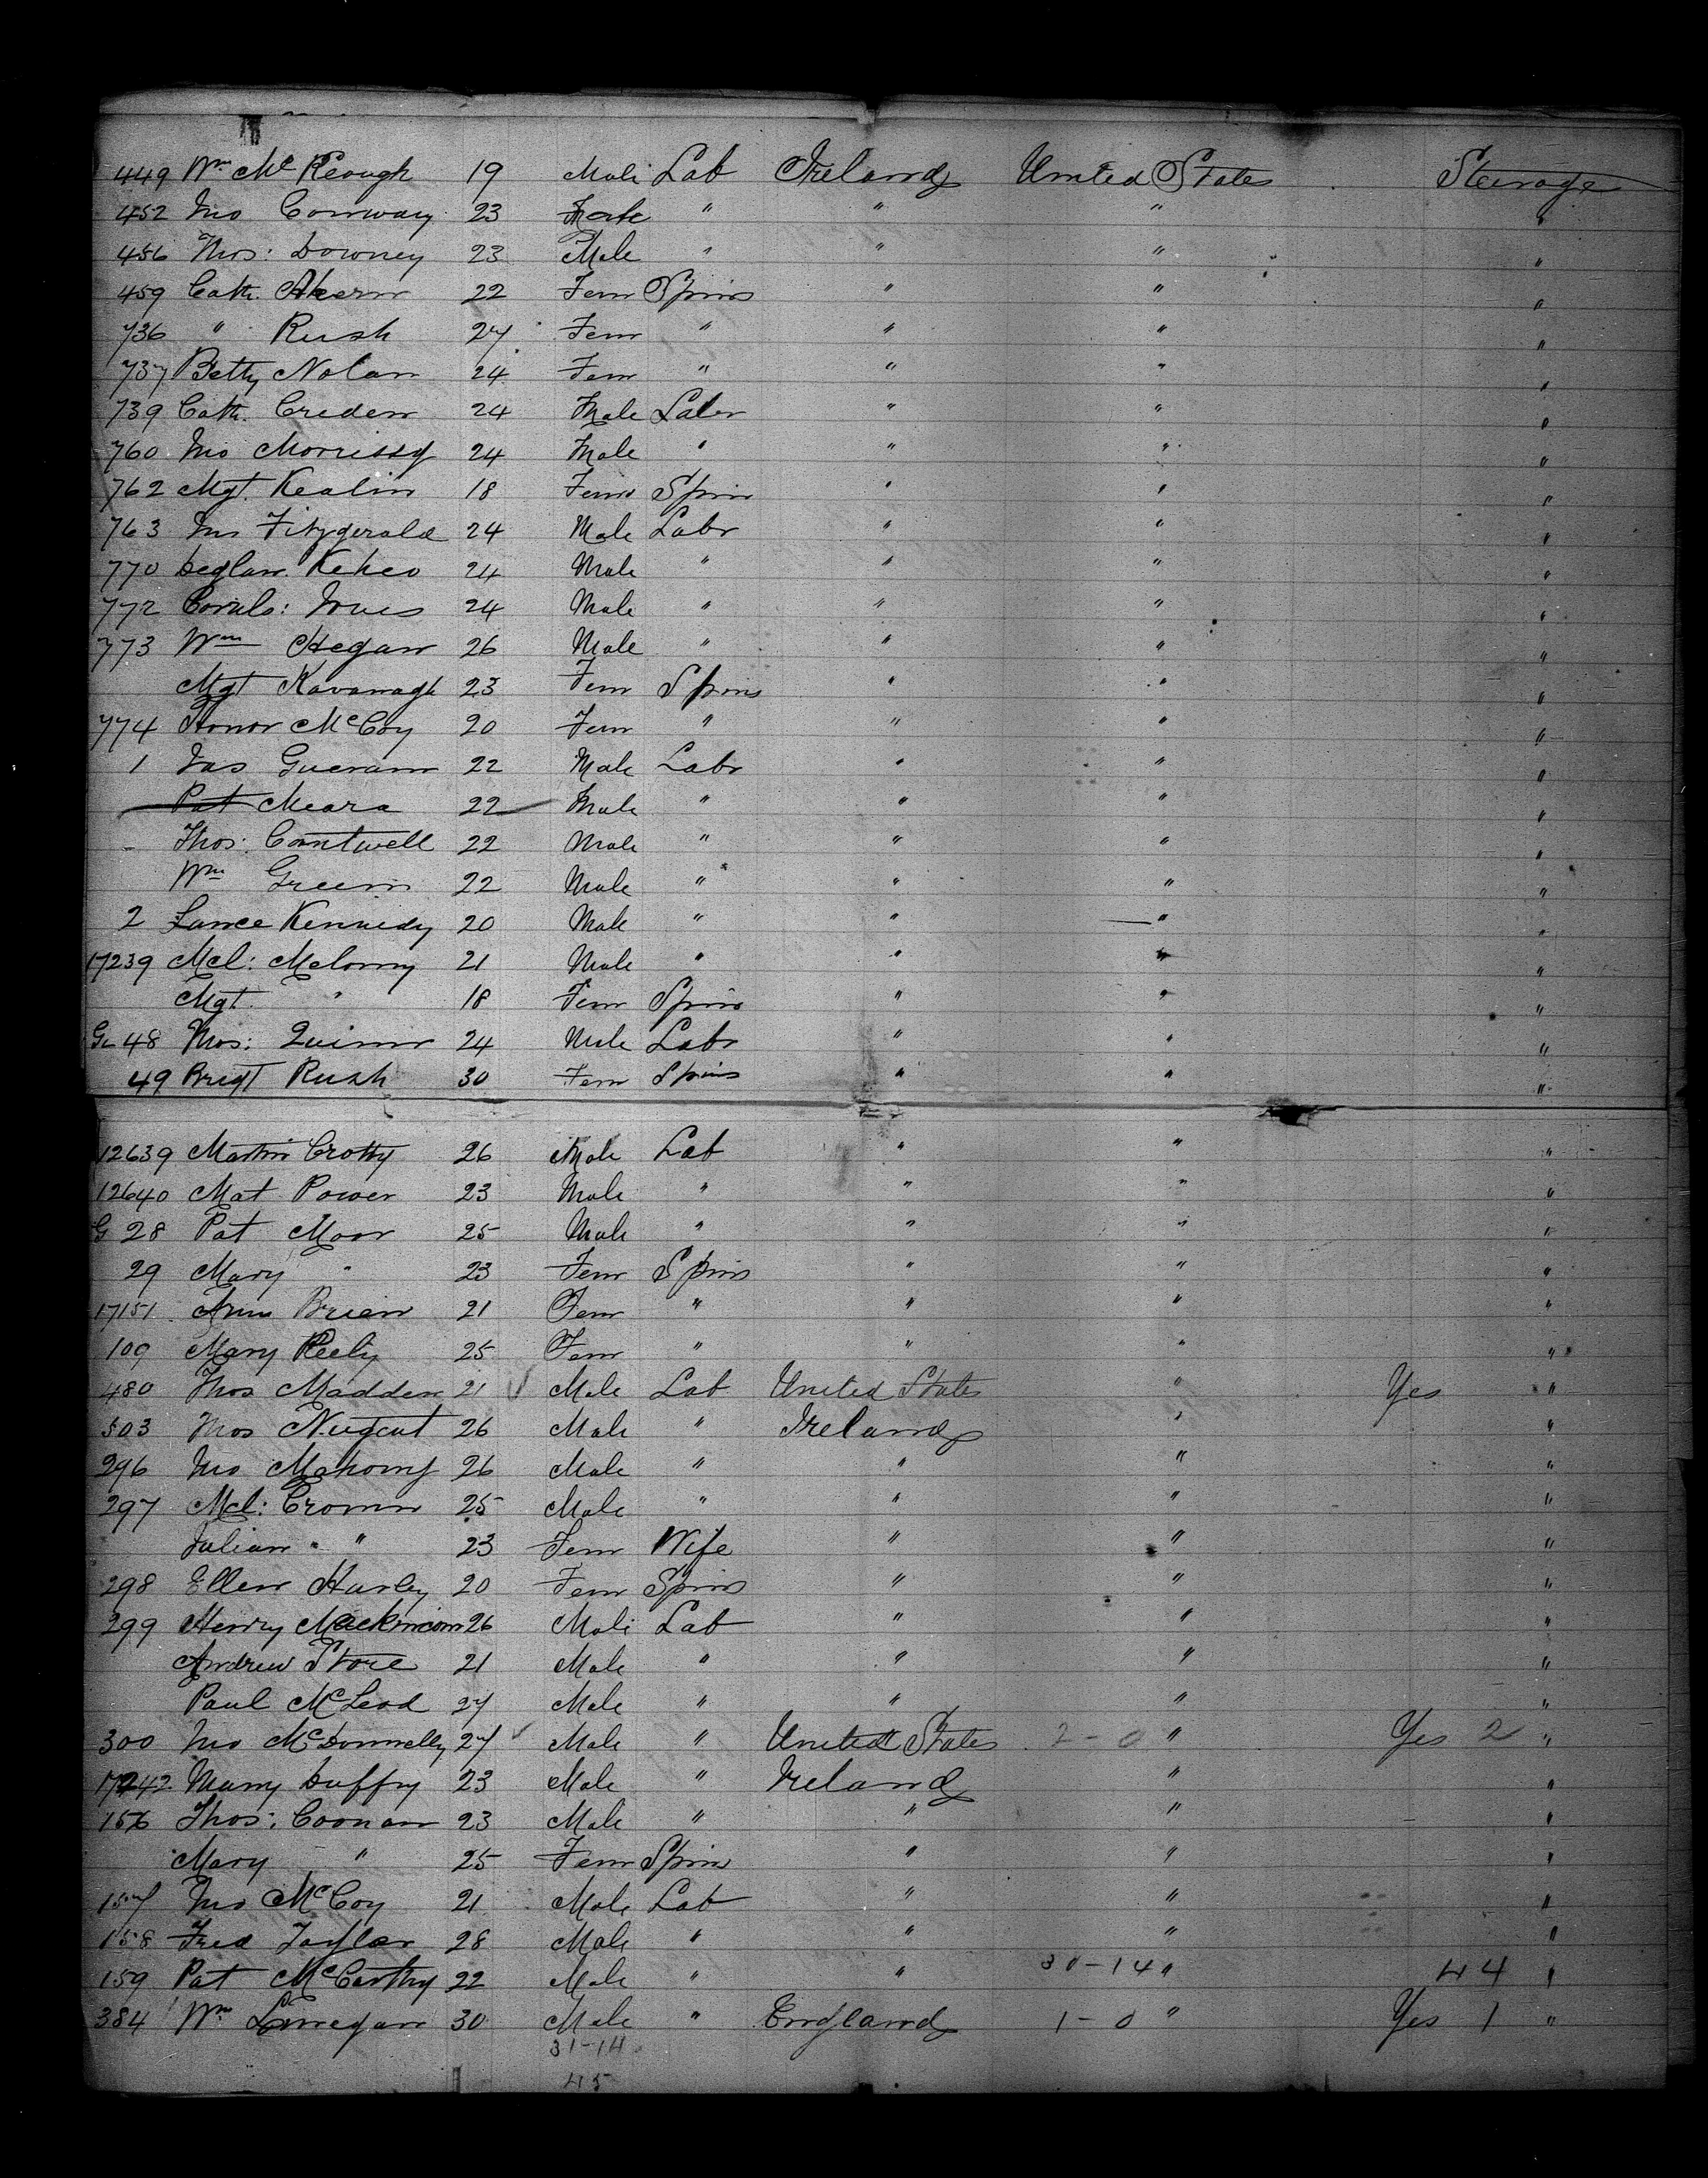 449 Wm Mc Keough 19 Male Lab Ireland United States Steerage
452 Jno Conway 23 Male " " " "
456 Thos: Downey 23 Male " " " "
459 Cath. Ahern 22 Fem Spins " " "
736 " Rush 27 Fem " " " "
737 Betty Nolan 24 Fem " " " "
739 Cath. Creden 24 Male Labr " " "
760 Jno Morrissy 24 Male " " " "
762 Mgt. Kealin 18 Fem Spin " " "
763 Jno Fitzgerald 24 Male Labr " " "
770 Deglan Keheo 24 Male " " " "
772 24 Male " " " "
773 Wm Hegan 26 Male " " " "
Mgt Kavanagh 23 Fem Spins " " "
774 Honor McCoy 20 Fem " " " "
1 Jas 22 Male Labr " " "
Pat Meara 22 Male " " " "
Thos: Cantwell 22 Male " " " "
Wm Green 22 Male " " " "
2 Lance Kennedy 20 Male " " " "
17239 Mcl: Melony 21 Male " " " "
Mgt. " 18 Fem Spins " " "
G 48 Thos: Quinn 24 Male Labr " " "
49 Brigt Rush 30 Fem Spins " " "
12639 Martin Crotty 26 Male Lab " " "
12640 Mat Power 23 Male " " " "
G 28 Pat Moor 25 Male " " " "
29 Mary " 23 Fem Spins " " "
17151 Ann Brien 21 Fem " " " "
109 Mary Reely 25 Fem " " " "
480 Thos Madden 21 Male Lab United States " Yes "
503 Thos Nugent 26 Male " Ireland " "
296 Jno Mahony 26 Male " " " "
297 Mcl: Cronin 25 Male " " " "
Julian " " 23 Fem Wife " " "
298 Ellen Hurley 20 Fem Spins " " "
299 Henry 26 Male Lab " " "
Andrew Stone 21 Male " " " "
Paul McLeod 27 Male " " " "
300 Jno McDonnelly 27 Male " United States 2-0 " Yes 2 "
17242 Marry Duffy 23 Male " Ireland " "
156 Thos: Coonan 23 Male " " " "
Mary " 25 Fem Spins " " "
157 Jno McCoy 21 Male Lab " " "
158 Fred Taylor 28 Male " " " "
159 Pat McCarthy 22 Male " " 30-14 " 44 "
384 Wm Lanegan 30 Male " England 1-0 " Yes 1 "
31-14
45